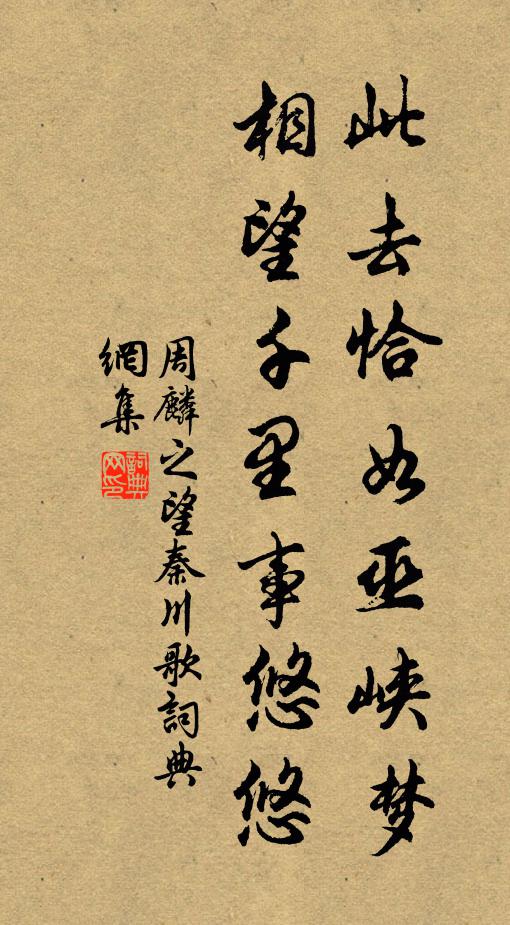 此去恰如巫峡梦
相望千里事悠悠
周麟之望秦川歌詞典
網集
詞典
网印